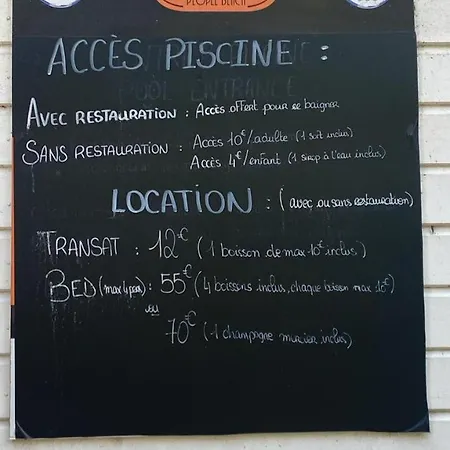 PEOPLE BEACH
ACCÈS PISCINE :
POOL ENTRANCE
AVEC RESTAURATION : Accès offert pour se baigner
SANS RESTAURATION : Accès 10€/adulte (1 soft inclus)
Accès 4€/enfant (1 sirop à l'eau inclus)
LOCATION : (avec ou sans restauration)
TRANSAT : 12€ (1 boisson de max 10€ inclus)
BED (max 4 pers) : 55€ (4 boissons inclus, chaque boisson max 10€)
ou
70€ (1 champagne mercier inclus)